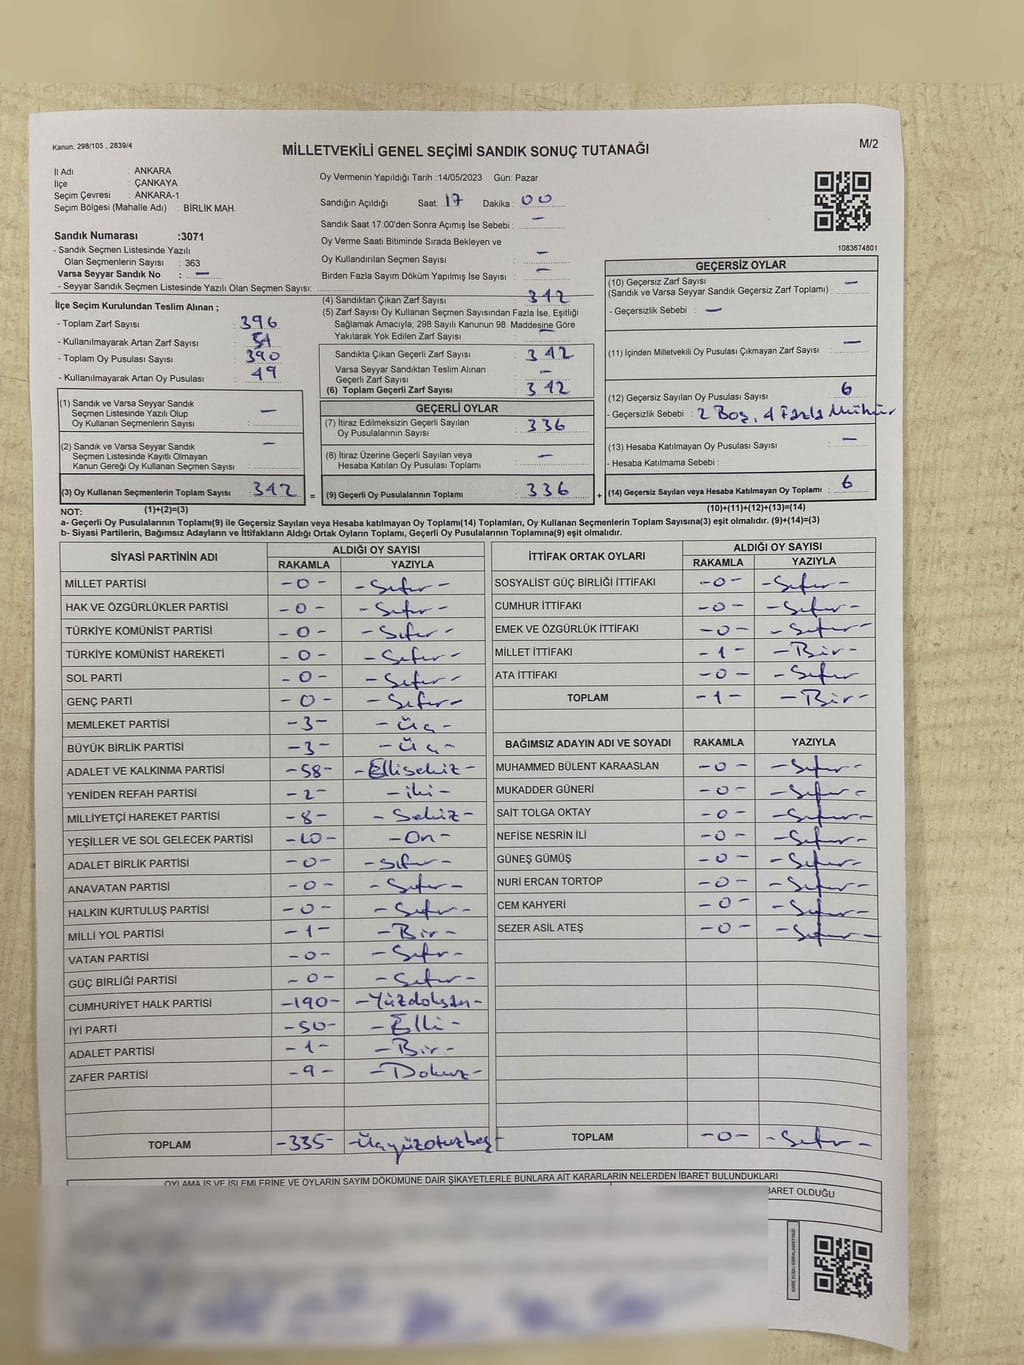 Kanun, 298/105 , 2839/4
MİLLETVEKİLİ GENEL SEÇİMİ SANDIK SONUÇ TUTANAĞI
M/2
İl Adı : ANKARA
İlçe : ÇANKAYA
Seçim Çevresi : ANKARA-1
Seçim Bölgesi (Mahalle Adı) : BİRLİK MAH.
Sandık Numarası :3071
- Sandık Seçmen Listesinde Yazılı
Olan Seçmenlerin Sayısı : 363
Varsa Seyyar Sandık No : —
- Seyyar Sandık Seçmen Listesinde Yazılı Olan Seçmen Sayısı:
Oy Vermenin Yapıldığı Tarih :14/05/2023 Gün: Pazar
Sandığın Açıldığı Saat: 17 Dakika : 00
Sandık Saat 17:00'den Sonra Açımış İse Sebebi : —
Oy Verme Saati Bitiminde Sırada Bekleyen ve
Oy Kullandırılan Seçmen Sayısı : —
Birden Fazla Sayım Döküm Yapılmış İse Sayısı : —
1083674801
İlçe Seçim Kurulundan Teslim Alınan ;
- Toplam Zarf Sayısı : 396
- Kullanılmayarak Artan Zarf Sayısı : 54
- Toplam Oy Pusulası Sayısı : 390
- Kullanılmayarak Artan Oy Pusulası : 49
(1) Sandık ve Varsa Seyyar Sandık
Seçmen Listesinde Yazılı Olup
Oy Kullanan Seçmenlerin Sayısı : —
(2) Sandık ve Varsa Seyyar Sandık
Seçmen Listesinde Kayıtlı Olmayan
Kanun Gereği Oy Kullanan Seçmen Sayısı : —
(3) Oy Kullanan Seçmenlerin Toplam Sayısı : 342 =
(1)+(2)=(3)
(4) Sandıktan Çıkan Zarf Sayısı : 342
(5) Zarf Sayısı Oy Kullanan Seçmen Sayısından Fazla İse, Eşitliği
Sağlamak Amacıyla; 298 Sayılı Kanunun 98. Maddesine Göre
Yakılarak Yok Edilen Zarf Sayısı : —
Sandıkta Çıkan Geçerli Zarf Sayısı : 342
Varsa Seyyar Sandıktan Teslim Alınan
Geçerli Zarf Sayısı : —
(6) Toplam Geçerli Zarf Sayısı : 342
GEÇERLİ OYLAR
(7) İtiraz Edilmeksizin Geçerli Sayılan
Oy Pusulalarının Sayısı : 336
(8) İtiraz Üzerine Geçerli Sayılan veya
Hesaba Katılan Oy Pusulası Toplamı : —
(9) Geçerli Oy Pusulalarının Toplamı : 336 +
GEÇERSİZ OYLAR
(10) Geçersiz Zarf Sayısı : —
(Sandık ve Varsa Seyyar Sandık Geçersiz Zarf Toplamı) :
- Geçersizlik Sebebi : —
(11) İçinden Milletvekili Oy Pusulası Çıkmayan Zarf Sayısı : —
(12) Geçersiz Sayılan Oy Pusulası Sayısı : 6
- Geçersizlik Sebebi : 2 Boş, 4 Fazla Mühür
(13) Hesaba Katılmayan Oy Pusulası Sayısı : —
- Hesaba Katılmama Sebebi :
(14) Geçersiz Sayılan veya Hesaba Katılmayan Oy Toplamı : 6
(10)+(11)+(12)+(13)=(14)
NOT:
a- Geçerli Oy Pusulalarının Toplamı(9) ile Geçersiz Sayılan veya Hesaba katılmayan Oy Toplamı(14) Toplamları, Oy Kullanan Seçmenlerin Toplam Sayısına(3) eşit olmalıdır. (9)+(14)=(3)
b- Siyasi Partilerin, Bağımsız Adayların ve İttifakların Aldığı Ortak Oyların Toplamı, Geçerli Oy Pusulalarının Toplamına(9) eşit olmalıdır.
SİYASİ PARTİNİN ADI ALDIĞI OY SAYISI
RAKAMLA YAZIYLA
MİLLET PARTİSİ -0- -Sıfır-
HAK VE ÖZGÜRLÜKLER PARTİSİ -0- -Sıfır-
TÜRKİYE KOMÜNİST PARTİSİ -0- -Sıfır-
TÜRKİYE KOMÜNİST HAREKETİ -0- -Sıfır-
SOL PARTİ -0- -Sıfır-
GENÇ PARTİ -0- -Sıfır-
MEMLEKET PARTİSİ -3- -Üç-
BÜYÜK BİRLİK PARTİSİ -3- -Üç-
ADALET VE KALKINMA PARTİSİ -58- -Ellisekiz-
YENİDEN REFAH PARTİSİ -2- -iki-
MİLLİYETÇİ HAREKET PARTİSİ -8- -Sekiz-
YEŞİLLER VE SOL GELECEK PARTİSİ -10- -On-
ADALET BİRLİK PARTİSİ -0- -sıfır-
ANAVATAN PARTİSİ -0- -Sıfır-
HALKIN KURTULUŞ PARTİSİ -0- -Sıfır-
MİLLİ YOL PARTİSİ -1- -Bir-
VATAN PARTİSİ -0- -Sıfır-
GÜÇ BİRLİĞİ PARTİSİ -0- -Sıfır-
CUMHURİYET HALK PARTİSİ -190- -Yüzdoksan-
İYİ PARTİ -50- -Elli-
ADALET PARTİSİ -1- -Bir-
ZAFER PARTİSİ -9- -Dokuz-
TOPLAM -335- -Üçyüzotuzbeş-
İTTİFAK ORTAK OYLARI ALDIĞI OY SAYISI
RAKAMLA YAZIYLA
SOSYALİST GÜÇ BİRLİĞİ İTTİFAKI -0- -Sıfır-
CUMHUR İTTİFAKI -0- -Sıfır-
EMEK VE ÖZGÜRLÜK İTTİFAKI -0- -Sıfır-
MİLLET İTTİFAKI -1- -Bir-
ATA İTTİFAKI -0- -Sıfır
TOPLAM -1- -Bir-
BAĞIMSIZ ADAYIN ADI VE SOYADI RAKAMLA YAZIYLA
MUHAMMED BÜLENT KARAASLAN -0- -Sıfır-
MUKADDER GÜNERİ -0- -Sıfır-
SAİT TOLGA OKTAY -0- -Sıfır-
NEFİSE NESRİN İLİ -0- -Sıfır-
GÜNEŞ GÜMÜŞ -0- -Sıfır-
NURİ ERCAN TORTOP -0- -Sıfır-
CEM KAHYERİ -0- -Sıfır-
SEZER ASİL ATEŞ -0- -Sıfır-
TOPLAM -0- -Sıfır-
OYLAMA İŞ VE İŞLEMLERİNE VE OYLARIN SAYIM DÖKÜMÜNE DAİR ŞİKAYETLERLE BUNLARA AİT KARARLARIN NELERDEN İBARET BULUNDUKLARI
BARET OLDUĞU